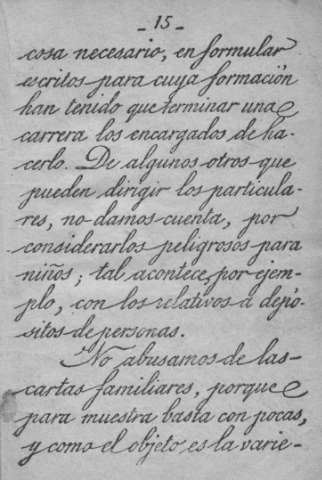 - 15 -
cosa necesario, en formular
escritos para cuya formación
han tenido que terminar una
carrera los encargados de ha-
cerlo. De algunos otros que
pueden dirigir los particula-
res, no damos cuenta, por
considerarlos peligrosos para
niños; tal acontece, por ejem-
plo, con los relativos a depó-
sitos de personas.
No abusamos de las
cartas familiares, porque
para muestra basta con pocas,
y como el objeto es la varie-